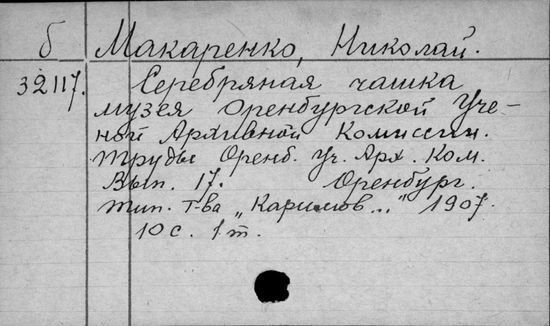 б Макаренко, Николай.
32117. Серебряная чашка
музея Оренбургской Уче-
ной Архивной Комиссии.
Труды Оренб. Уч. Арх. Ком.
Вып. 17. Оренбург.
тип. т-ва „Каримов..." 1907.
10 с. 1 т.